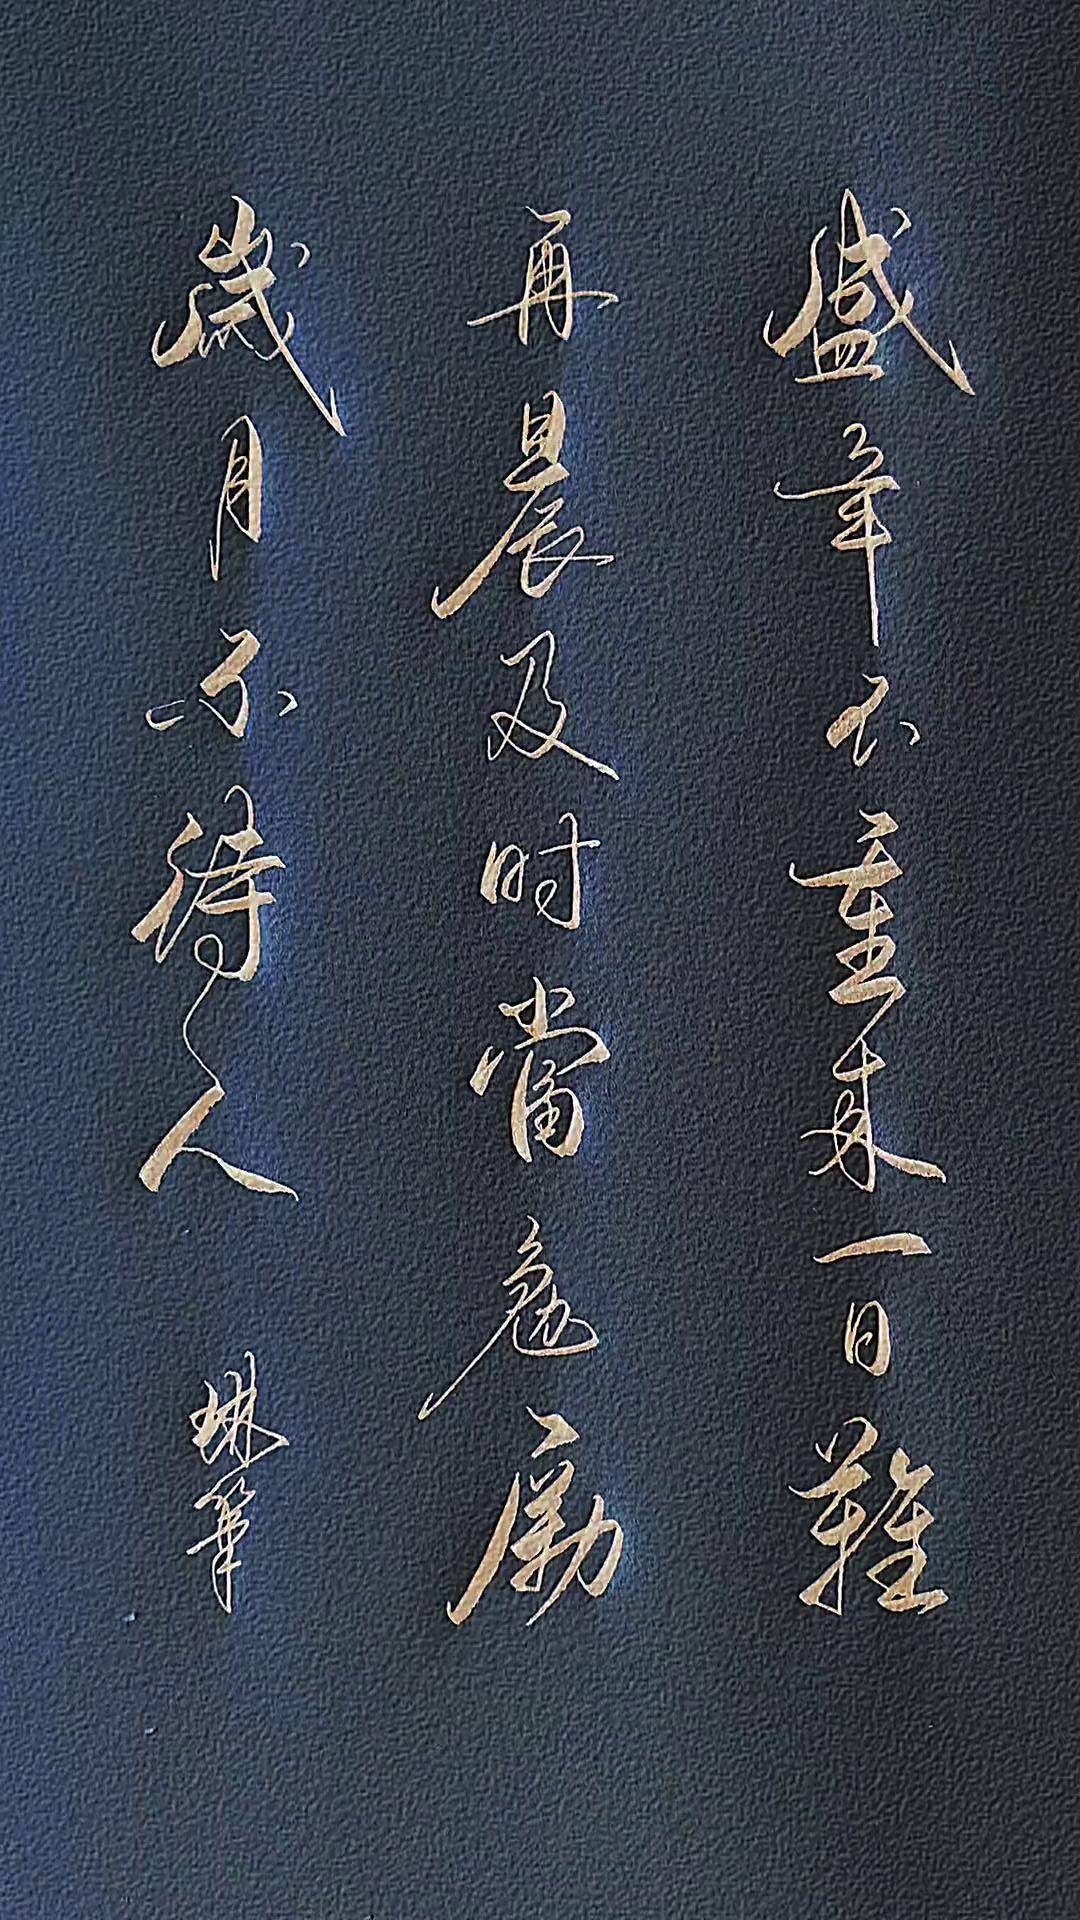 盛年不重来一日難
再晨及时當勉励
歲月不待人
琳筆